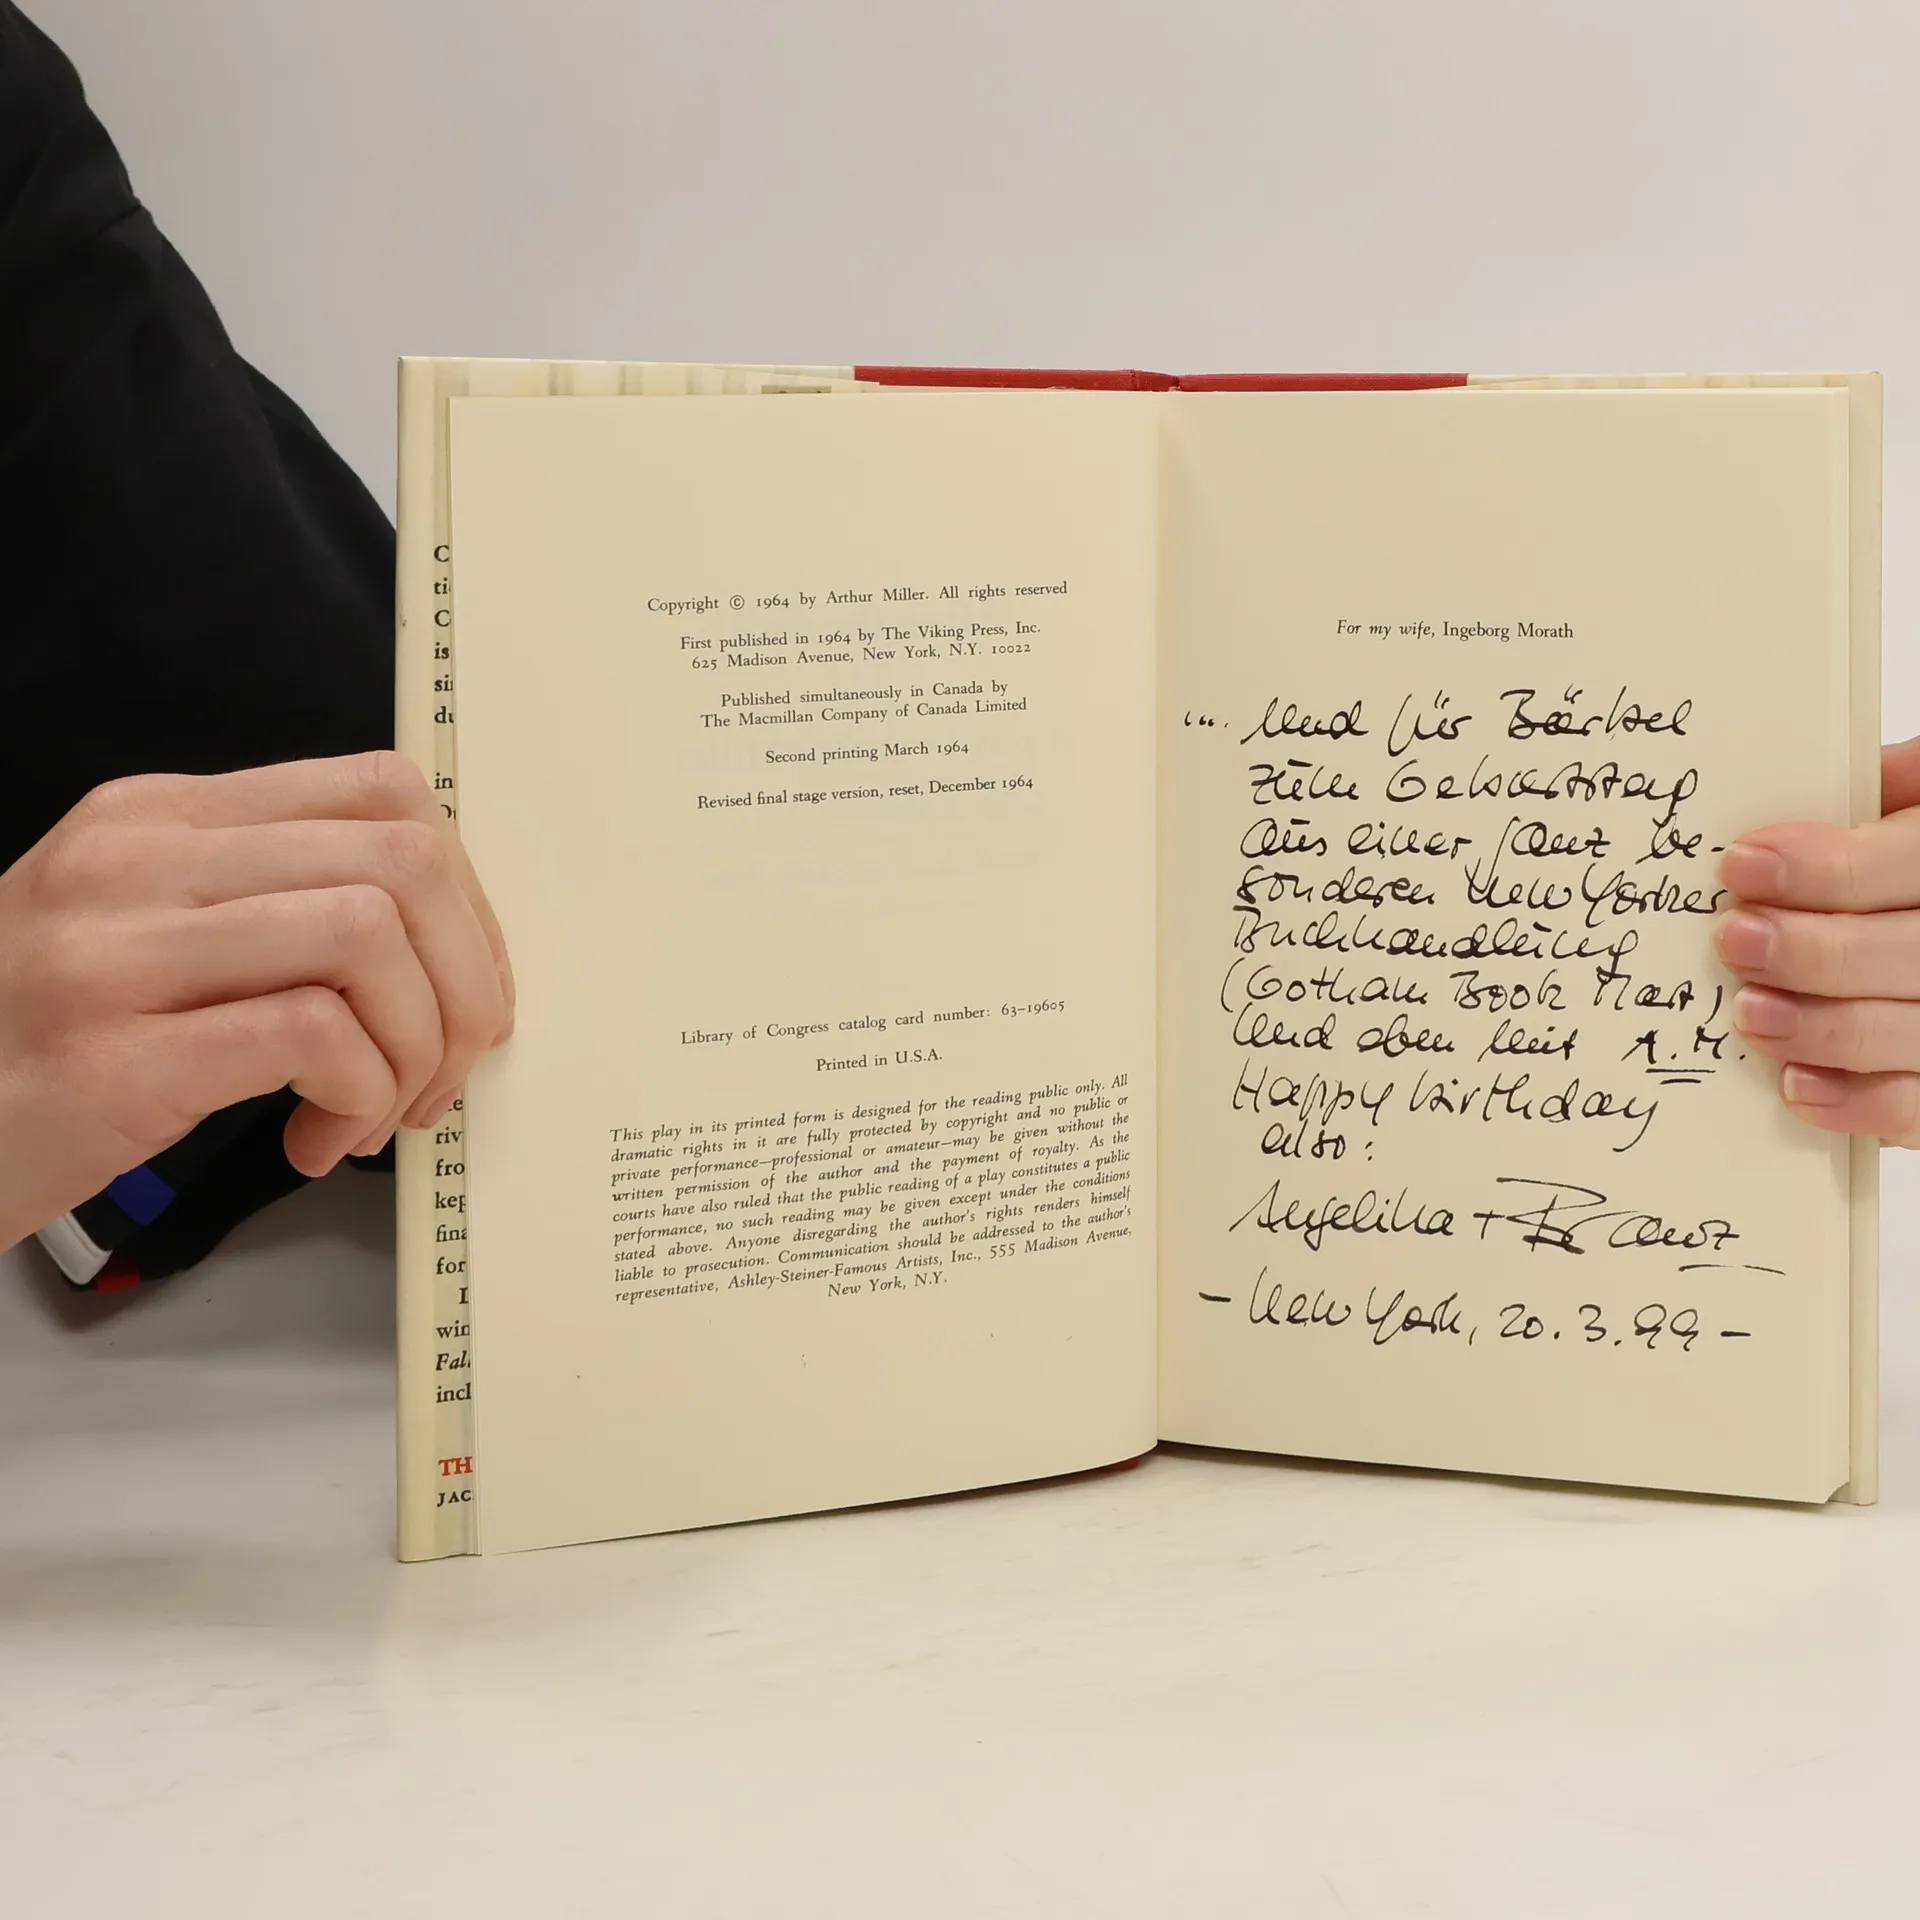 C
ti
C
is
si
du
in
riv
fro
kep
fina
for
win
Fal
incl
TH
JAC
Copyright © 1964 by Arthur Miller. All rights reserved
First published in 1964 by The Viking Press, Inc.
625 Madison Avenue, New York, N.Y. 10022
Published simultaneously in Canada by
The Macmillan Company of Canada Limited
Second printing March 1964
Revised final stage version, reset, December 1964
Library of Congress catalog card number: 63–19605
Printed in U.S.A.
This play in its printed form is designed for the reading public only. All
dramatic rights in it are fully protected by copyright and no public or
private performance—professional or amateur—may be given without the
written permission of the author and the payment of royalty. As the
courts have also ruled that the public reading of a play constitutes a public
performance, no such reading may be given except under the conditions
stated above. Anyone disregarding the author's rights renders himself
liable to prosecution. Communication should be addressed to the author's
representative, Ashley-Steiner-Famous Artists, Inc., 555 Madison Avenue,
New York, N.Y.
For my wife, Ingeborg Morath
... Und für Bärbel
zum Geburtstag
aus einer ganz be-
sonderen New Yorker
Buchhandlung
(Gotham Book Mart)
und eben mit A.M.
Happy birthday
also:
Angelika +
– New York, 20.3.99 –